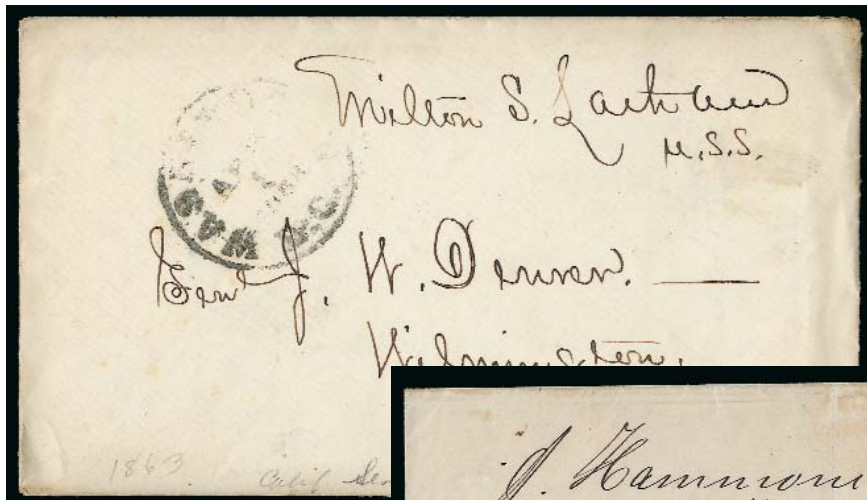 Milton S. Latham
U.S.S.
WAS D.C.
Genl J. W. Denver.
Wilmington,
1863 Calif Sen
J. Hammon